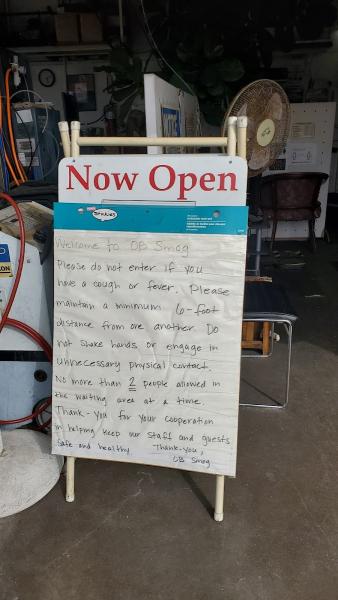 Now Open
Welcome to OB Smog
Please do not enter if you
have a cough or fever. Please
maintain a minimum 6-foot
distance from one another. Do
not shake hands or engage in
unnecessary physical contact.
No more than 2 people allowed in
the waiting area at a time.
Thank-you for your cooperation
in helping keep our staff and guests
safe and healthy. Thank-you,
OB Smog